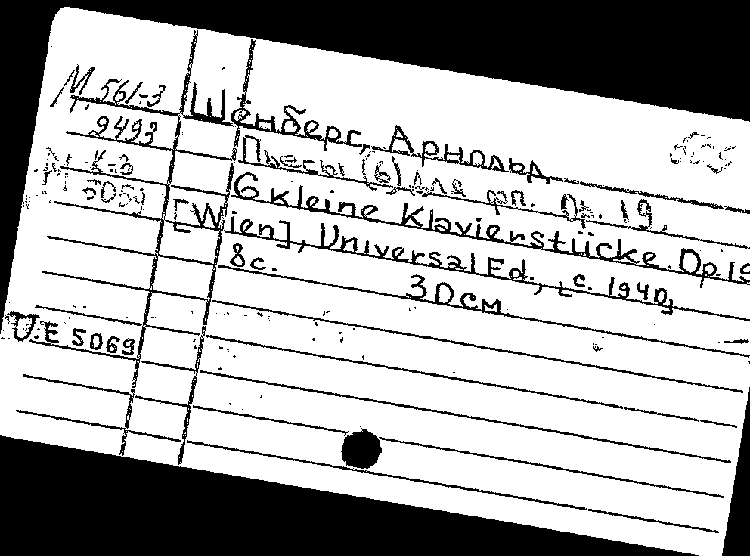 М. 561-3
9493
М К-3
5059
Шёнберг, Арнольд
Пьесы (6) для фп. Op. 19.
6 kleine Klavierstücke. Op. 19
[Wien], Universal Ed., [c. 1940]
8 с. 30 см
U.E 5069